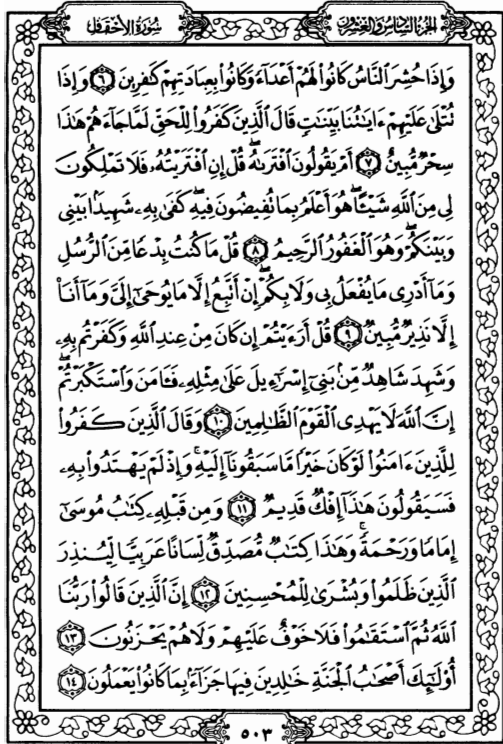 الجزء السادس والعشرون سورة الأحقاف
وَإِذَا حُشِرَ ٱلنَّاسُ كَانُوا۟ لَهُمْ أَعْدَآءً وَكَانُوا۟ بِعِبَادَتِهِمْ كَٰفِرِينَ ٦ وَإِذَا
تُتْلَىٰ عَلَيْهِمْ ءَايَٰتُنَا بَيِّنَٰتٍ قَالَ ٱلَّذِينَ كَفَرُوا۟ لِلْحَقِّ لَمَّا جَآءَهُمْ هَٰذَا
سِحْرٌ مُّبِينٌ ٧ أَمْ يَقُولُونَ ٱفْتَرَىٰهُ ۖ قُلْ إِنِ ٱفْتَرَيْتُهُۥ فَلَا تَمْلِكُونَ
لِى مِنَ ٱللَّهِ شَيْـًٔا ۖ هُوَ أَعْلَمُ بِمَا تُفِيضُونَ فِيهِ ۖ كَفَىٰ بِهِۦ شَهِيدًۢا بَيْنِى
وَبَيْنَكُمْ ۖ وَهُوَ ٱلْغَفُورُ ٱلرَّحِيمُ ٨ قُلْ مَا كُنتُ بِدْعًا مِّنَ ٱلرُّسُلِ
وَمَآ أَدْرِى مَا يُفْعَلُ بِى وَلَا بِكُمْ ۖ إِنْ أَتَّبِعُ إِلَّا مَا يُوحَىٰٓ إِلَىَّ وَمَآ أَنَا۠
إِلَّا نَذِيرٌ مُّبِينٌ ٩ قُلْ أَرَءَيْتُمْ إِن كَانَ مِنْ عِندِ ٱللَّهِ وَكَفَرْتُم بِهِۦ
وَشَهِدَ شَاهِدٌ مِّنۢ بَنِىٓ إِسْرَٰٓءِيلَ عَلَىٰ مِثْلِهِۦ فَـَٔامَنَ وَٱسْتَكْبَرْتُمْ ۖ
إِنَّ ٱللَّهَ لَا يَهْدِى ٱلْقَوْمَ ٱلظَّٰلِمِينَ ١٠ وَقَالَ ٱلَّذِينَ كَفَرُوا۟
لِلَّذِينَ ءَامَنُوا۟ لَوْ كَانَ خَيْرًا مَّا سَبَقُونَآ إِلَيْهِ ۚ وَإِذْ لَمْ يَهْتَدُوا۟ بِهِۦ
فَسَيَقُولُونَ هَٰذَآ إِفْكٌ قَدِيمٌ ١١ وَمِن قَبْلِهِۦ كِتَٰبُ مُوسَىٰٓ
إِمَامًا وَرَحْمَةً ۚ وَهَٰذَا كِتَٰبٌ مُّصَدِّقٌ لِّسَانًا عَرَبِيًّا لِّيُنذِرَ
ٱلَّذِينَ ظَلَمُوا۟ وَبُشْرَىٰ لِلْمُحْسِنِينَ ١٢ إِنَّ ٱلَّذِينَ قَالُوا۟ رَبُّنَا
ٱللَّهُ ثُمَّ ٱسْتَقَٰمُوا۟ فَلَا خَوْفٌ عَلَيْهِمْ وَلَا هُمْ يَحْزَنُونَ ١٣
أُو۟لَٰٓئِكَ أَصْحَٰبُ ٱلْجَنَّةِ خَٰلِدِينَ فِيهَا جَزَآءًۢ بِمَا كَانُوا۟ يَعْمَلُونَ ١٤
٥٠٣